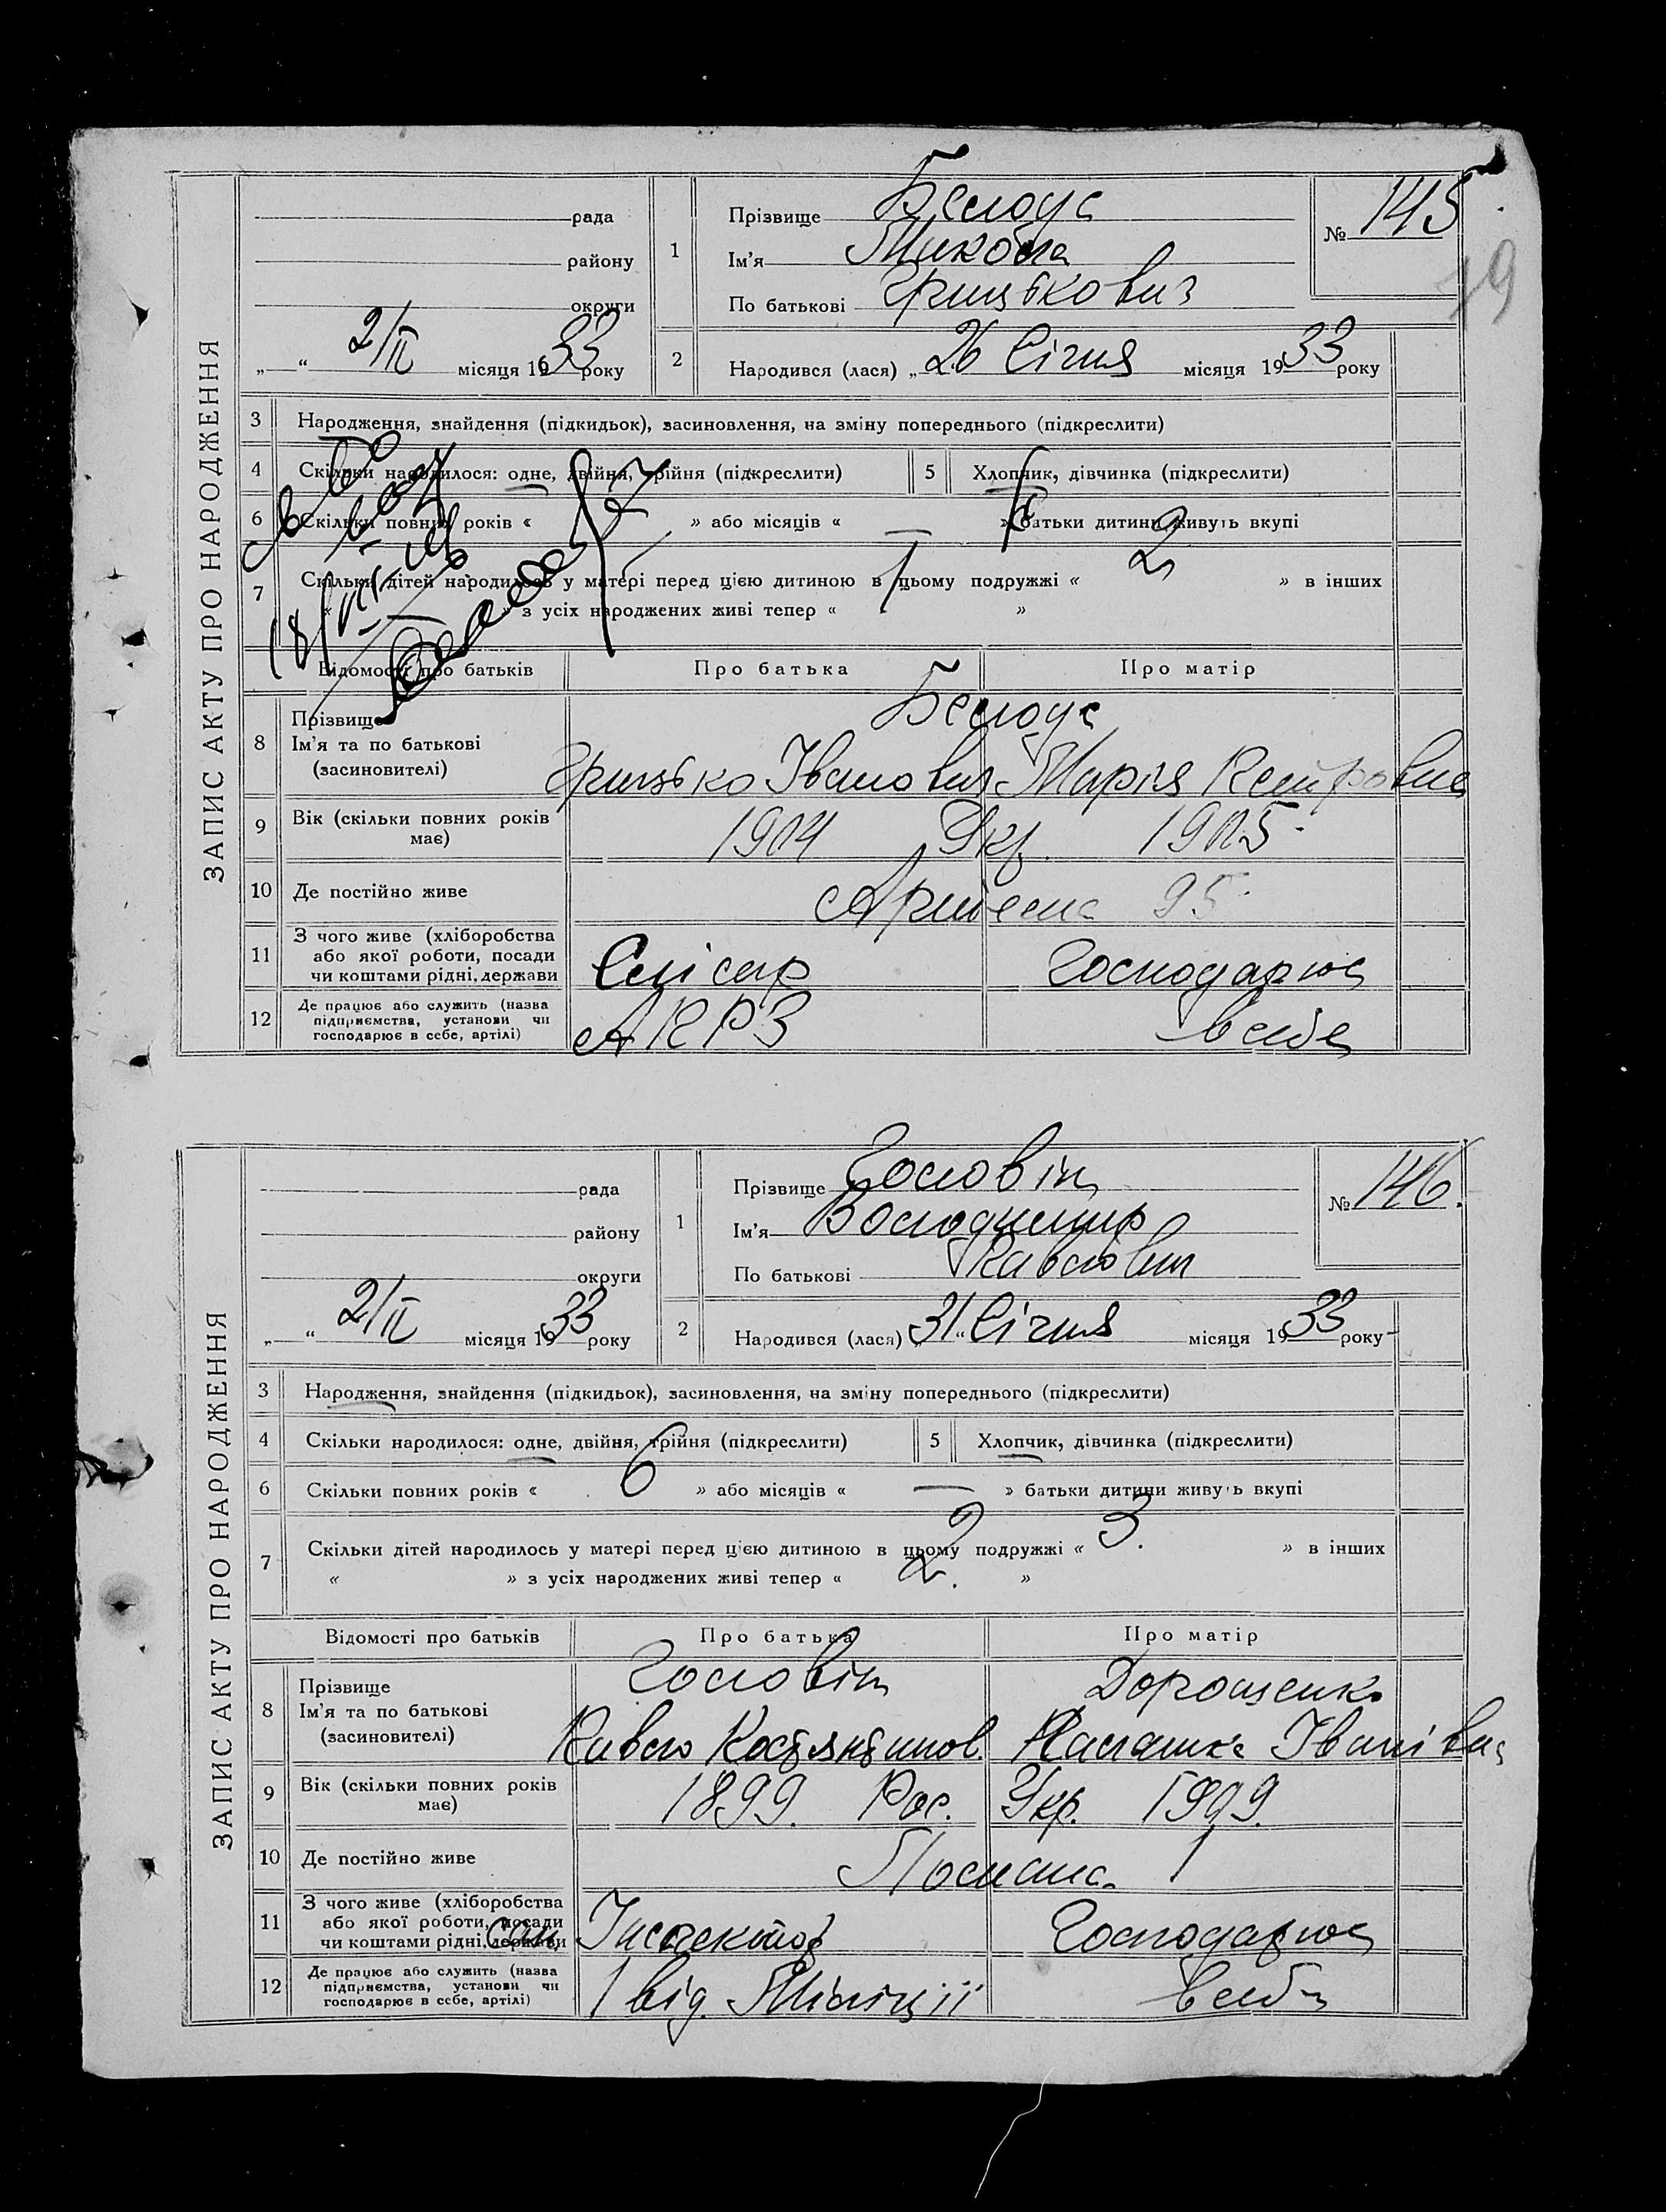 ЗАПИС АКТУ ПРО НАРОДЖЕННЯ
рада
району
округи
„ “ 2/II місяця 1933 року
1 Прізвище Белоус
Ім'я Микола
По батькові Грицькович
№ 145
79
2 Народився (лася) „ 26 Січня місяця 1933 року
3 Народження, знайдення (підкидьок), засиновлення, на зміну попереднього (підкреслити)
4 Скільки народилося: одне, двійня, трійня (підкреслити) 5 Хлопчик, дівчинка (підкреслити)
6 Скільки повних років « » або місяців « — » батьки дитини живуть вкупі
7 Скільки дітей народилось у матері перед цією дитиною в цьому подружжі « 2 » в інших
« » з усіх народжених живі тепер « »
Відомості про батьків Про батька Про матір
8 Прізвище Белоус
Ім'я та по батькові
(засиновителі) Грицько Іванович Марія Петровна
9 Вік (скільки повних років має) 1904 Укр. 1905
10 Де постійно живе Артема 95
11 З чого живе (хліборобства або якої роботи, посади чи коштами рідні, держави Слісар Господарює
12 Де працює або служить (назва підприємства, установи чи господарює в себе, артілі) АКРЗ в себе
ЗАПИС АКТУ ПРО НАРОДЖЕННЯ
рада
району
округи
„ “ 2/II місяця 1933 року
1 Прізвище Головін
Ім'я Володимир
По батькові Павлович
№ 146.
2 Народився (лася) „ 31 “ Січня місяця 1933 року
3 Народження, знайдення (підкидьок), засиновлення, на зміну попереднього (підкреслити)
4 Скільки народилося: одне, двійня, трійня (підкреслити) 5 Хлопчик, дівчинка (підкреслити)
6 Скільки повних років « 6 » або місяців « — » батьки дитини живуть вкупі
7 Скільки дітей народилось у матері перед цією дитиною в цьому подружжі « 3. » в інших
« » з усіх народжених живі тепер « 2. »
Відомості про батьків Про батька Про матір
8 Прізвище Головін Дорошенко
Ім'я та по батькові
(засиновителі) Павло Костянтинов. Палашка Іванівна
9 Вік (скільки повних років має) 1899. Рос. Укр. 1909.
10 Де постійно живе 1
11 З чого живе (хліборобства або якої роботи, посади чи коштами рідні, держави Інспектор Господарює
12 Де працює або служить (назва підприємства, установи чи господарює в себе, артілі) 1 від. Міліції в себе